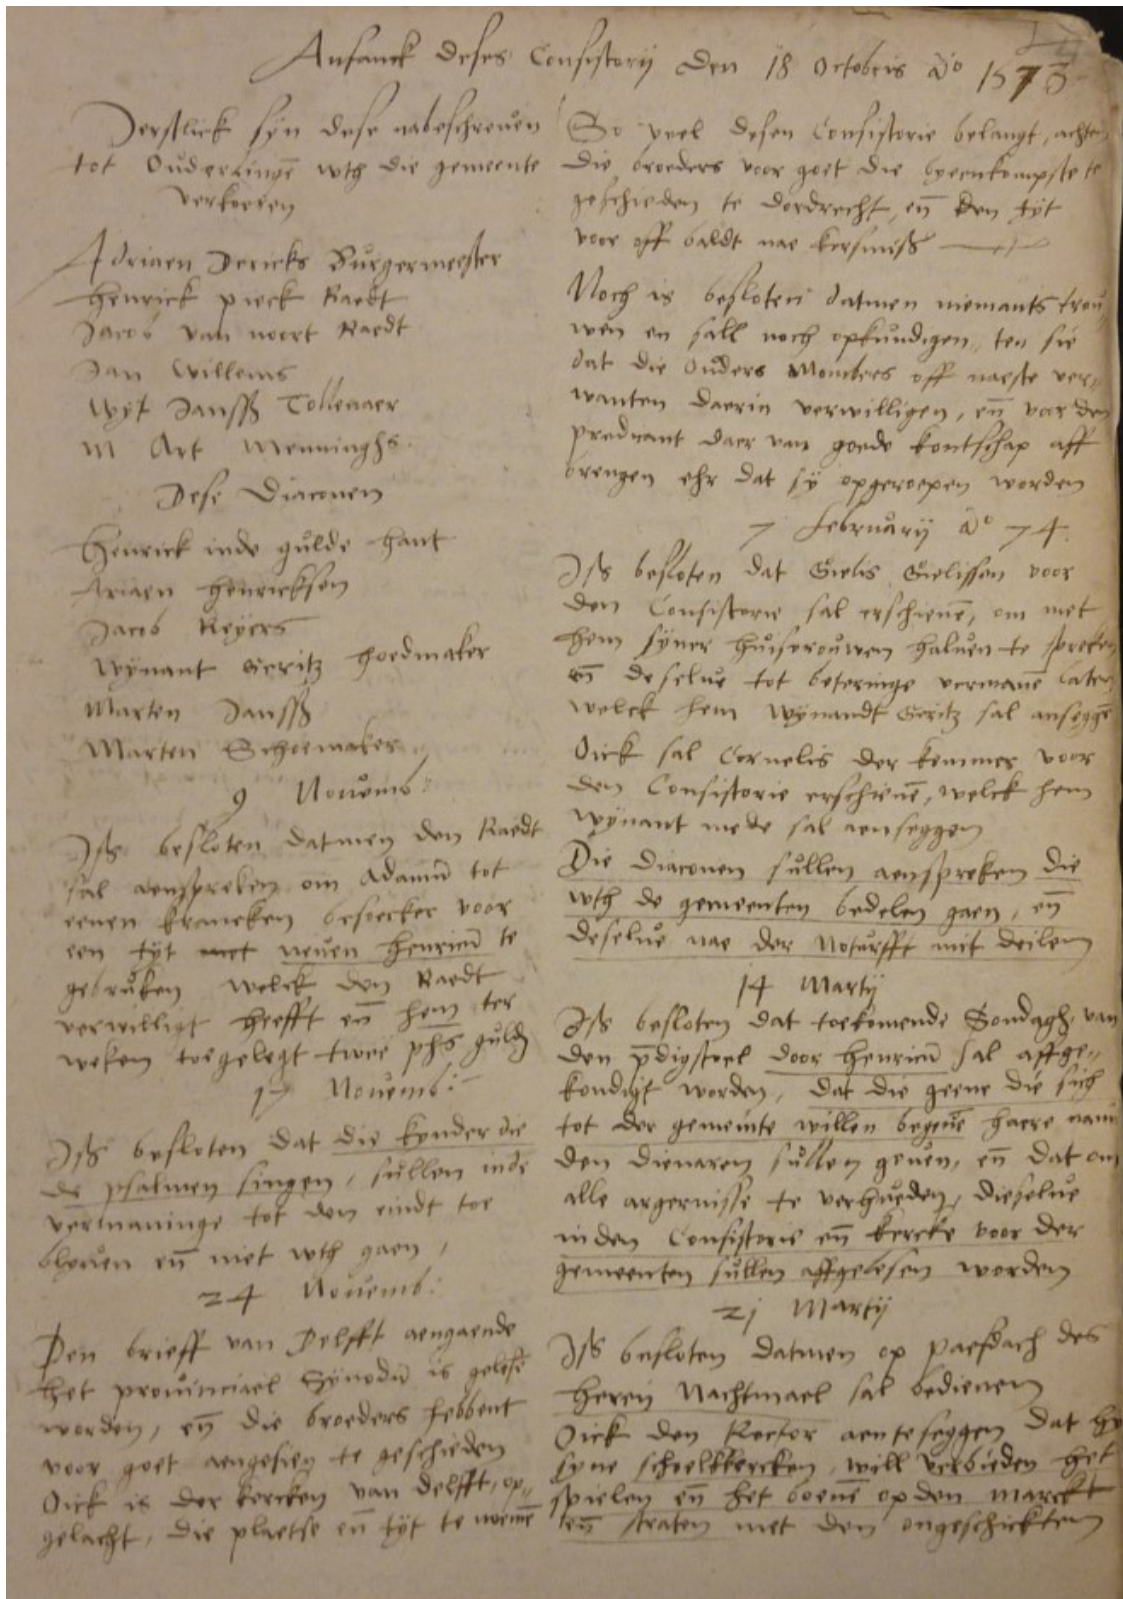 Anfanck deses Consistorij den 18 Octobris A° 1573
Derstlick syn dese nabeschreuen
tot Ouderlingē wth die gemeente
verkoeren
Adriaen Dericks Burgermeester
Henrick pieck Raedt
Jacob van noort Raedt
Jan Willems
Wyt Janssz Tollenaer
M Art Menninghs
Dese Diaconen
Henrick inde gulde hant
Ariaen Henricksen
Jacob Reyers
Wynant Geritz hoedmaker
Marten Janssz
Marten Schoemaker
9 Nouemb:
Iss besloten datmen den Raedt
sal aenspreken om Adamū tot
eenen krancken besoecker voor
een tyt met neuen Henricū te
gebruken welck den Raedt
verwilligt heefft en̄ hem ter
weken toegelegt twee phs guld
17 Nouemb:
Iss besloten dat die kynder die
de psalmen singen, sullen inde
vermaninge tot den eindt toe
bleuen en̄ niet wth gaen,
24 Nouemb:
Den brieff van Delfft aengaende
het prouinciael Synodū is gelesē
worden, en̄ die broeders hebbent
voor goet aengesien te geschieden
Oick is der kercken van Delfft, op„
gelacht, die plaetse en̄ tyt te noemē
So veel desen Consistorie belangt, achten
die broeders voor goet die byeenkompste te
geschieden te Dordrecht, en̄ den tyt
voor off baldt nae kersmiss
Noch is besloten datmen niemants trou„
wen en sall noch opkundigen, ten sie
dat die Ouders Mombers off naeste ver„
wanten daerin verwilligen, en̄ voor den
predicant daer van goede kontschap aff
brengen ehr dat sy opgeroepen worden
7 februarij A° 74
Iss besloten dat Gielis Gielissen voor
den Consistorie sal erschienē, om met
hem syner huisvrouwen haluen te spreken
en̄ deselue tot beteringe vermanē laten
welck hem Wynandt Geritz sal anseggē
Oick sal Cornelis der kemmer voor
den Consistorie erschienē, welck hem
Wynant mede sal aenseggen
Die diaconen sullen aenspreken die
wth de gemeenten bedelen gaen, en̄
deselue nae der Noturfft mit deilen
14 Martij
Iss besloten dat toekomende Sondagh van
den p̄digstoel door Henricū sal affge„
kondigt worden, dat die geene die sich
tot der gemeinte willen begeuē haere nam
den dienaren sullen geuen, en̄ dat om
alle argernisse te verhueden, dieselue
inden Consistorie en̄ kercke voor der
gemeenten sullen affgelesen worden
21 Martij
Iss besloten datmen op paeschdach des
Heren Nachtmael sal bedienen
Oick den Rector aenteseggen dat hy
syne schoelkercken, will verbieden het
spielen en̄ het boenē op den marckt
en̄ straten met den ongeschickten